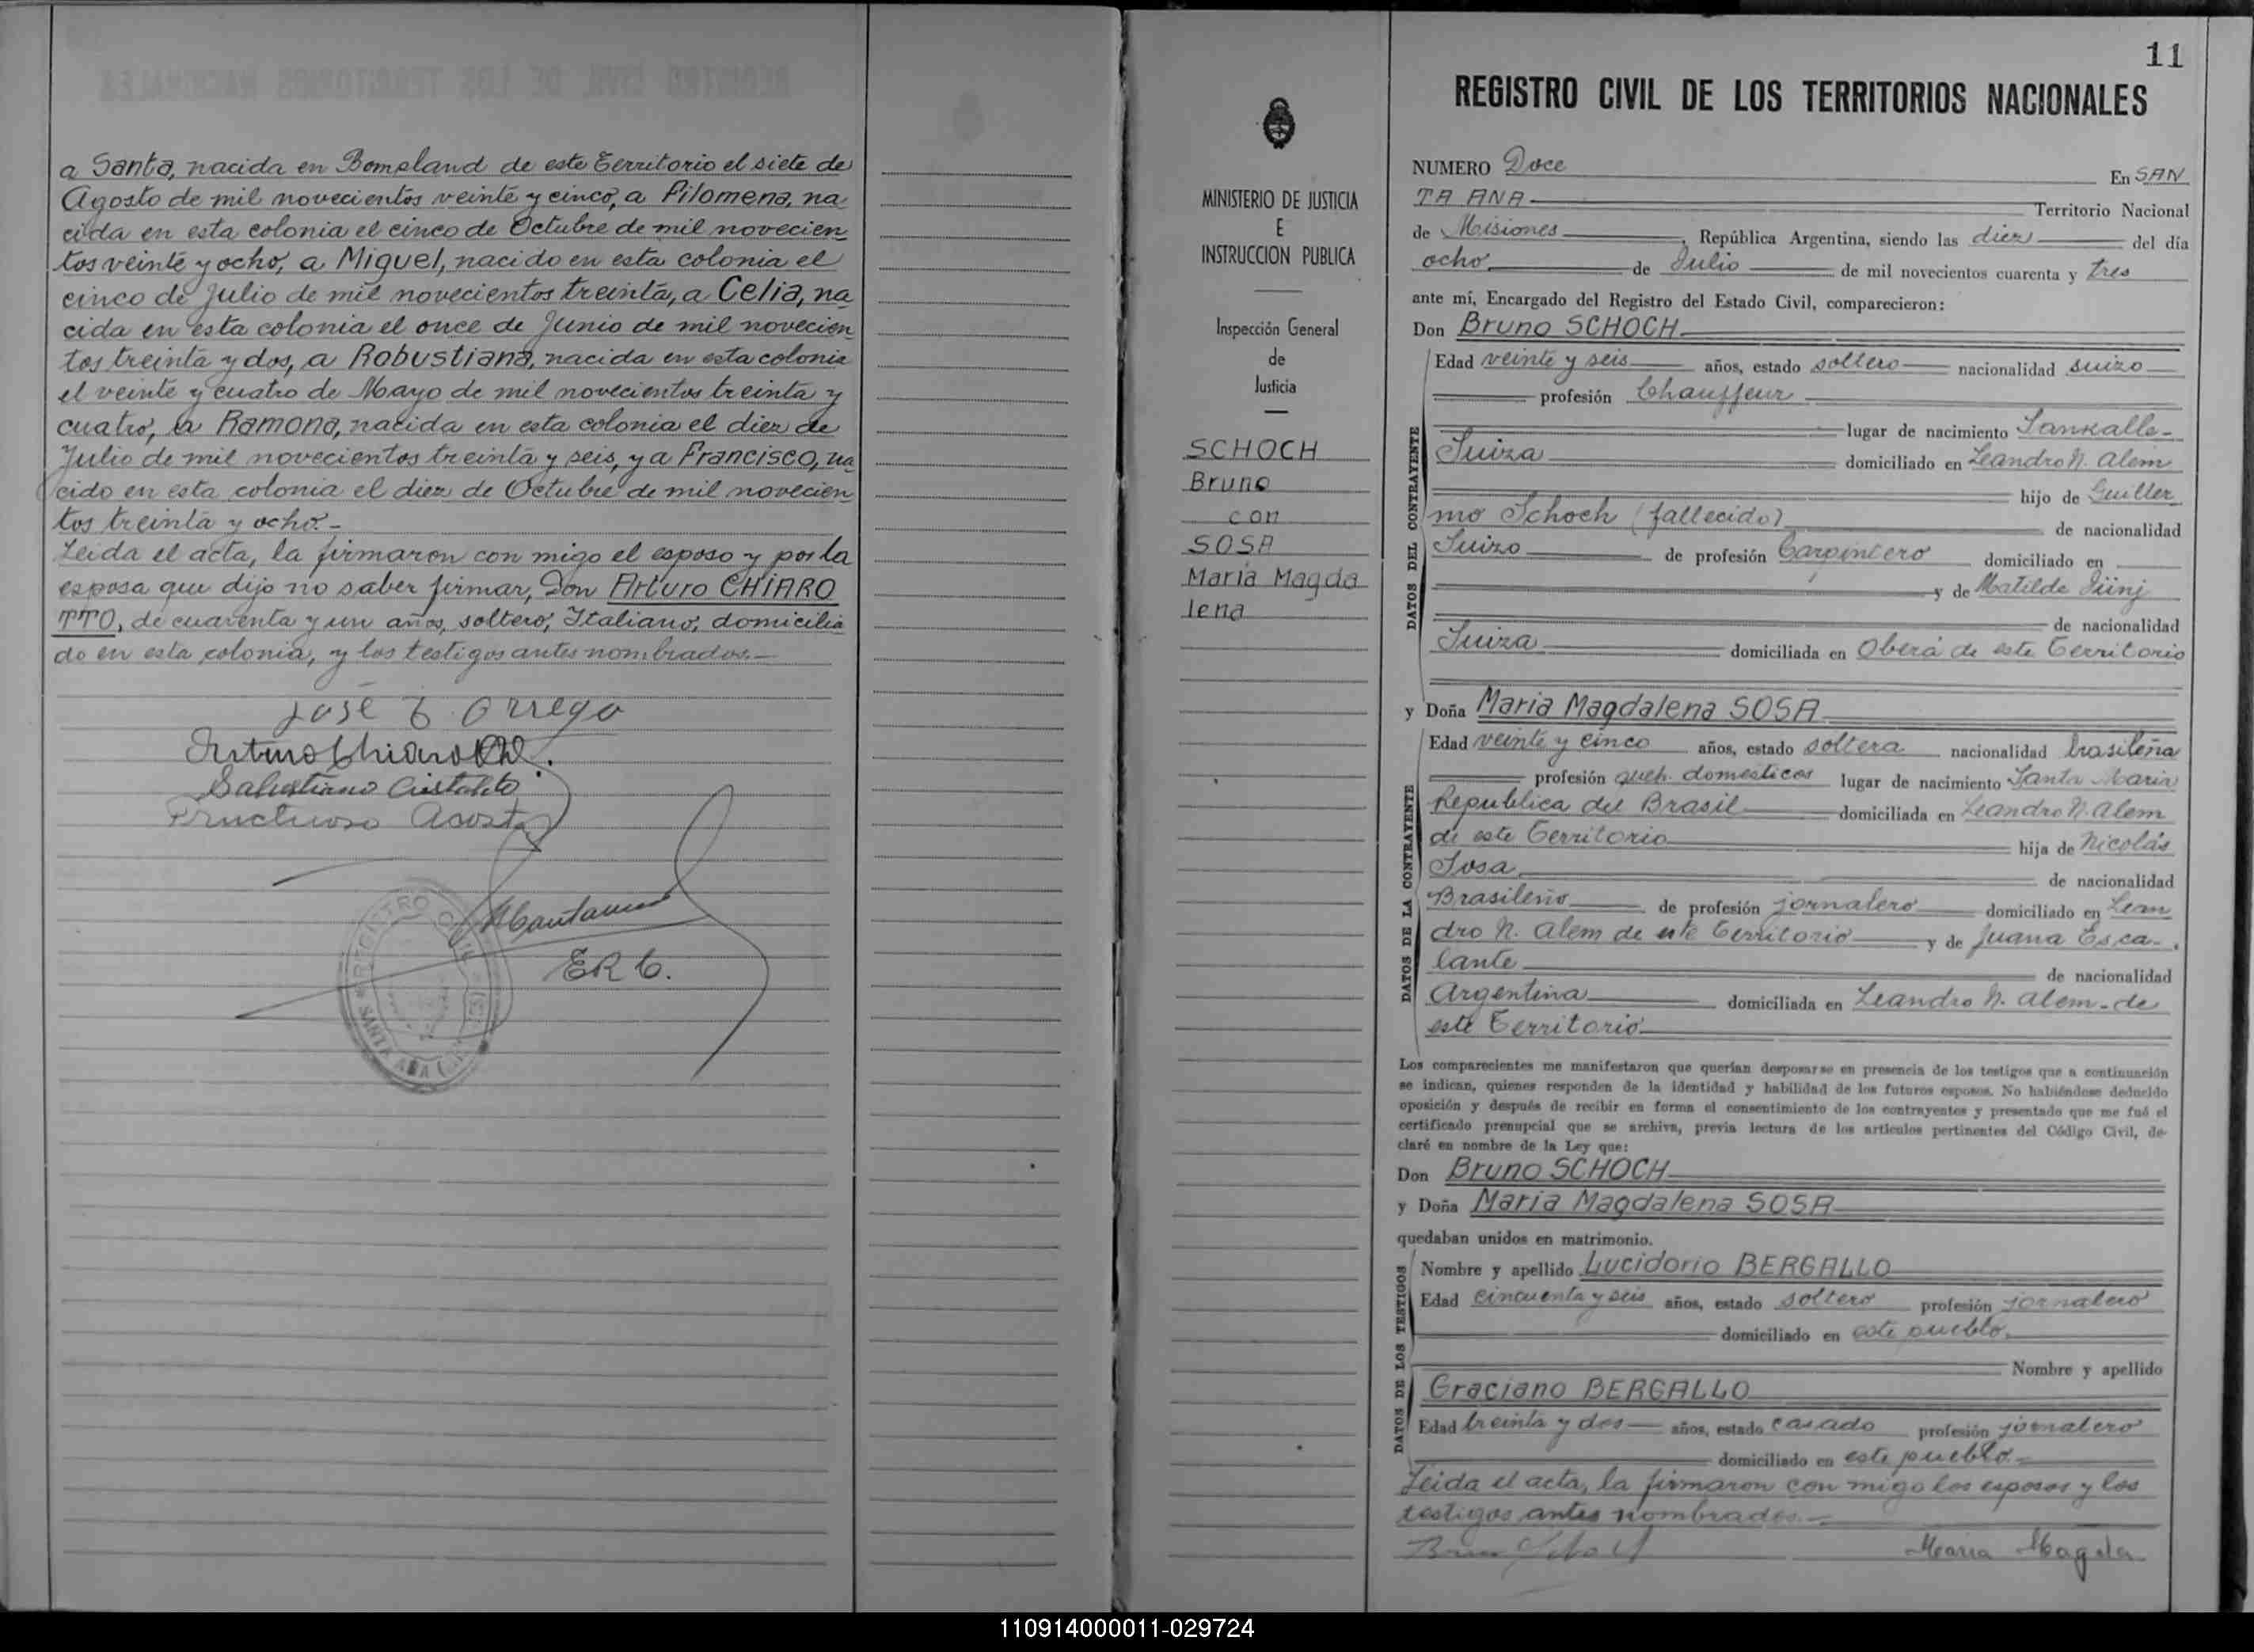 a Santa, nacida en Bompland de este Territorio el siete de
Agosto de mil novecientos veinte y cinco, a Filomena, na
cida en esta colonia el cinco de Octubre de mil novecien
tos veinte y ocho, a Miguel, nacido en esta colonia el
cinco de Julio de mil novecientos treinta, a Celia, na
cida en esta colonia el once de Junio de mil novecien
tos treinta y dos, a Robustiana, nacida en esta colonia
el veinte y cuatro de Mayo de mil novecientos treinta y
cuatro, a Ramona, nacida en esta colonia el diez de
Julio de mil novecientos treinta y seis, y a Francisco, na
cido en esta colonia el diez de Octubre de mil novecien
tos treinta y ocho.-
Leida el acta, la firmaron con migo el esposo y por la
esposa que dijo no saber firmar, Don Arturo CHIARO
TTO, de cuarenta y un años, soltero, Italiano, domicilia
do en esta colonia, y los testigos antes nombrados.-
José E. Orrego
Arturo Chiarotto
Salustiano Cristaldo
Fructuoso Acosta
E R C.
REGISTRO CIVIL
SANTA ANA
MINISTERIO DE JUSTICIA
E
INSTRUCCION PUBLICA
Inspección General
de
Justicia
SCHOCH
Bruno
con
SOSA
Maria Magda
lena
11
REGISTRO CIVIL DE LOS TERRITORIOS NACIONALES
NUMERO Doce En SAN
TA ANA Territorio Nacional
de Misiones, República Argentina, siendo las diez del día
ocho de Julio de mil novecientos cuarenta y tres
ante mí, Encargado del Registro del Estado Civil, comparecieron:
Don Bruno SCHOCH
DATOS DEL CONTRAYENTE
Edad veinte y seis años, estado soltero nacionalidad suizo
profesión Chauffeur
lugar de nacimiento Sankalle-
Suiza domiciliado en Leandro N. Alem
hijo de Guiller
mo Schoch (fallecido) de nacionalidad
Suizo de profesión Carpintero domiciliado en
y de Matilde Jünj
de nacionalidad
Suiza domiciliada en Oberá de este Territorio
y Doña Maria Magdalena SOSA
DATOS DE LA CONTRAYENTE
Edad veinte y cinco años, estado soltera nacionalidad brasileña
profesión queh. domesticos lugar de nacimiento Santa Maria
Republica del Brasil domiciliada en Leandro N. Alem
de este Territorio hija de Nicolás
Sosa de nacionalidad
Brasileño de profesión jornalero domiciliado en Lean
dro N. Alem de este Territorio y de Juana Esca-
lante de nacionalidad
Argentina domiciliada en Leandro N. Alem-de
este Territorio
Los comparecientes me manifestaron que querían desposarse en presencia de los testigos que a continuación
se indican, quienes responden de la identidad y habilidad de los futuros esposos. No habiéndose deducido
oposición y después de recibir en forma el consentimiento de los contrayentes y presentado que me fué el
certificado prenupcial que se archiva, previa lectura de los artículos pertinentes del Código Civil, de-
claré en nombre de la Ley que:
Don Bruno SCHOCH
y Doña Maria Magdalena SOSA
quedaban unidos en matrimonio.
DATOS DE LOS TESTIGOS
Nombre y apellido Lucidorio BERGALLO
Edad cincuenta y seis años, estado soltero profesión jornalero
domiciliado en este pueblo.
Nombre y apellido
Graciano BERGALLO
Edad treinta y dos años, estado casado profesión jornalero
domiciliado en este pueblo.-
Leida el acta, la firmaron con migo los esposos y los
testigos antes nombrados.-
Maria Magda
110914000011-029724